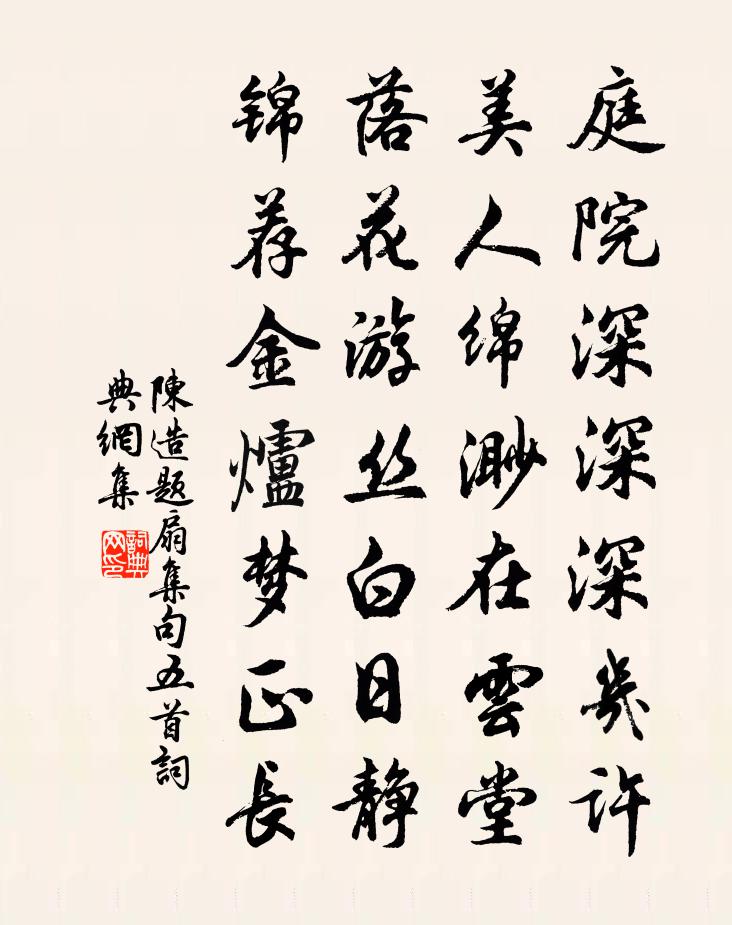 庭院深深深幾许
美人绵渺在雲堂
落花游丝白日静
锦荐金爐梦正長
陳造题扇集句五首詞
典網集
詞典网印